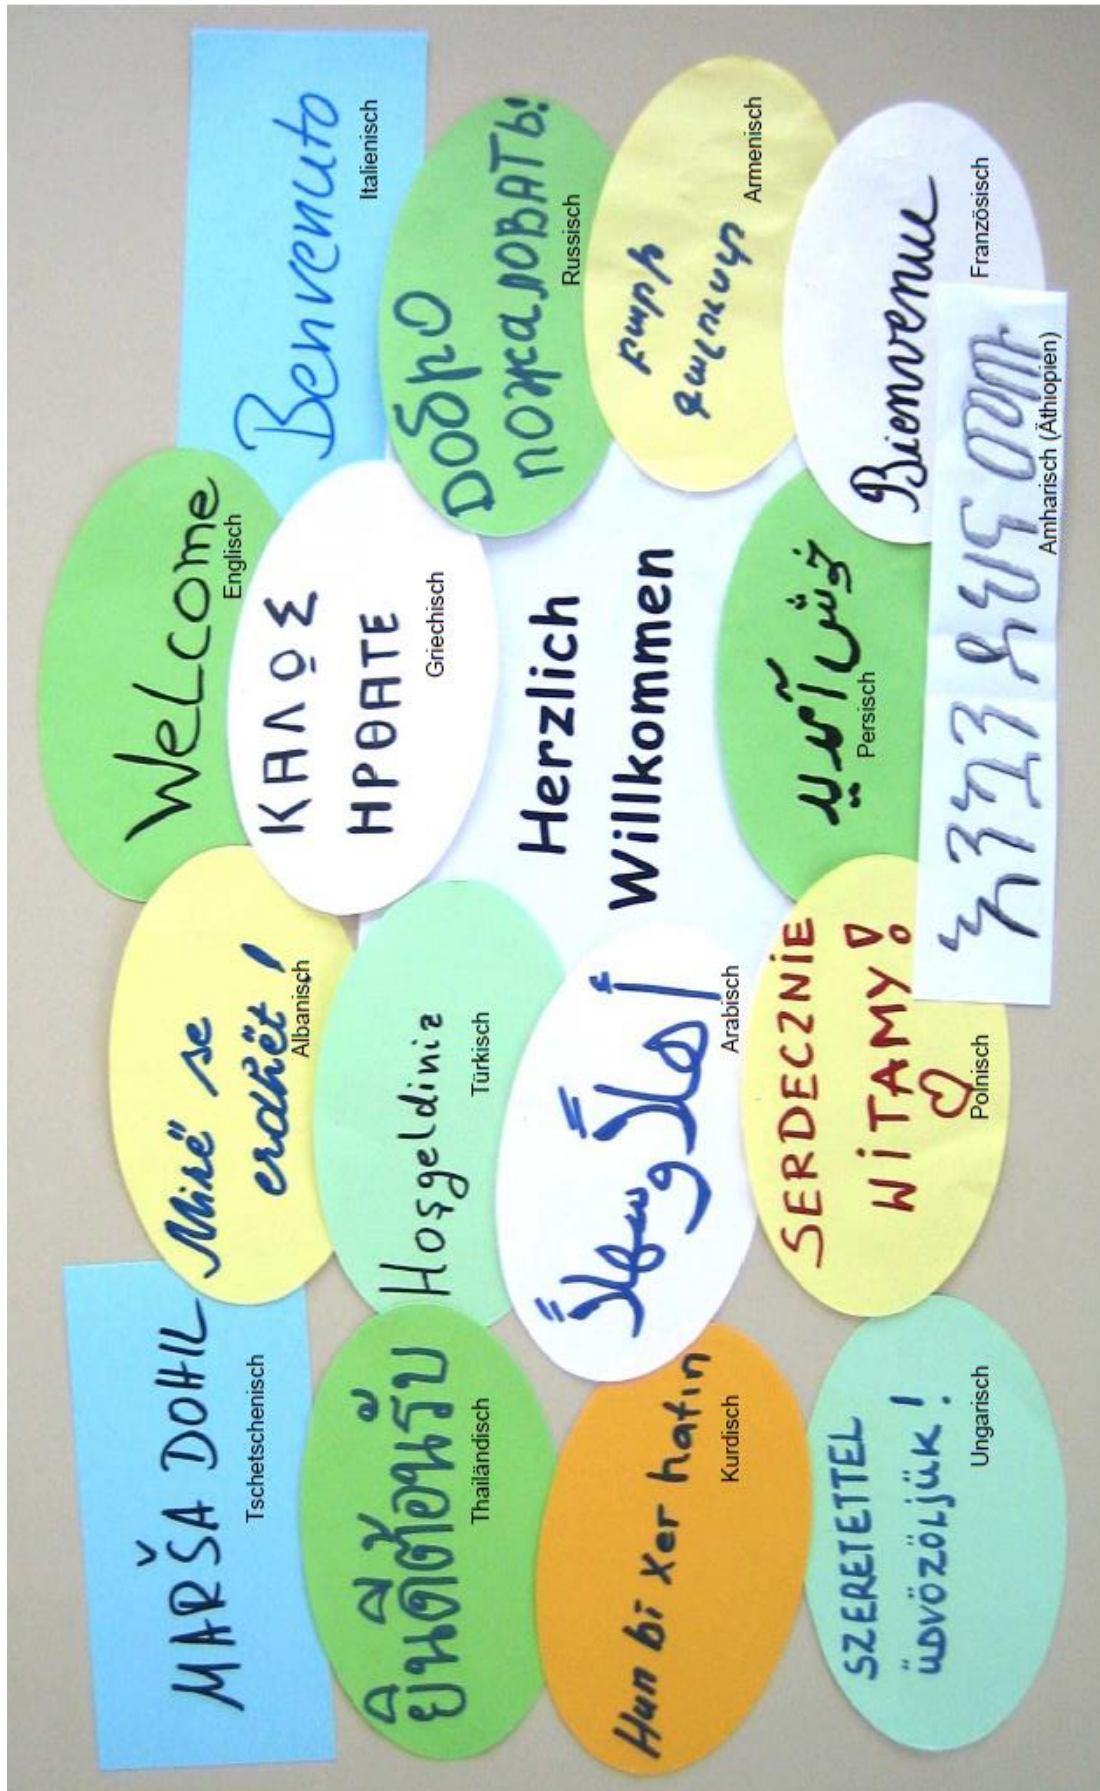 MARŠA DOHIL
Tschetschenisch
Mirë se
erdhët!
Albanisch
Welcome
Englisch
Benvenuto
Italienisch
ยินดีต้อนรับ
Thailändisch
Hoşgeldiniz
Türkisch
ΚΑΛΩΣ
ΗΡΘΑΤΕ
Griechisch
Добро
пожаловать!
Russisch
Herzlich
Willkommen
Hun bi xer hatin
Kurdisch
أهلاً وسهلاً
Arabisch
Բարի
գալուստ
Armenisch
خوش آمدید
Persisch
SZERETETTEL
ÜDVÖZÖLJÜK!
Ungarisch
SERDECZNIE
WITAMY!
Polnisch
Bienvenue
Französisch
እንኳን ደህና መጡ
Amharisch (Äthiopien)